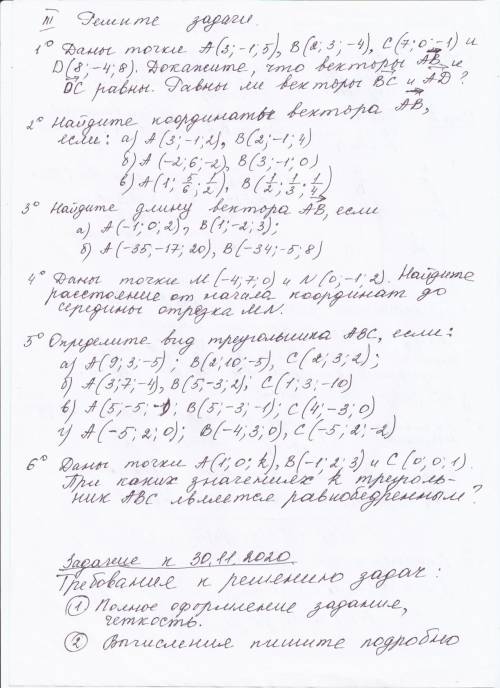 III Решите задачи.
1° Даны точки A(3; -1; 5), B(2; 3; -4), C(7; 0; -1) и
D(8; -4; 8). Докажите, что векторы AB и
DC равны. Равны ли векторы BC и AD?
2° Найдите координаты вектора AB,
если: а) A(3; -1; 2), B(2; -1; 4)
б) A(-2; 6; -2), B(3; -1; 0)
в) A(1; 5/6; 1/2), B(1/2; 1/3; 1/4)
3° Найдите длину вектора AB, если
а) A(-1; 0; 2), B(1; -2; 3);
б) A(-35; -17; 20), B(-34; -5; 8)
4° Даны точки M(-4; 7; 0) и N(0; -1; 2). Найдите
расстояние от начала координат до
середины отрезка MN.
5° Определите вид треугольника ABC, если:
а) A(9; 3; -5); B(2; 10; -5), C(2; 3; 2);
б) A(3; 7; -4), B(5; -3; 2); C(1; 3; -10)
в) A(5; -5; -1); B(5; -3; -1); C(4; -3; 0)
г) A(-5; 2; 0); B(-4; 3; 0), C(-5; 2; -2)
6° Даны точки A(1; 0; k), B(-1; 2; 3) и C(0; 0; 1).
При каких значениях k треуголь-
ник ABC является равнобедренным?
Задание к 30.11.2020
Требования к решению задач:
① Полное оформление задания,
четкость.
② Вычисления пишите подробно